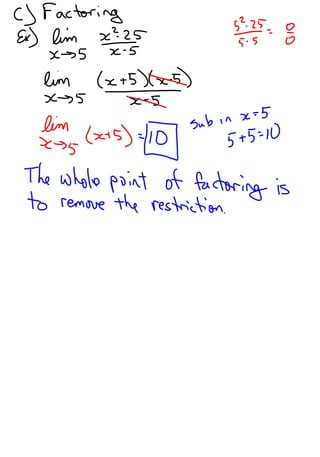 C) Factoring
Ex) lim x→5 (x²-25)/(x-5)
(5²-25)/(5-5) = 0/0
lim x→5 (x+5)(x-5)/(x-5)
lim x→5 (x+5) = 10
sub in x=5
5+5=10
The whole point of factoring is
to remove the restriction.